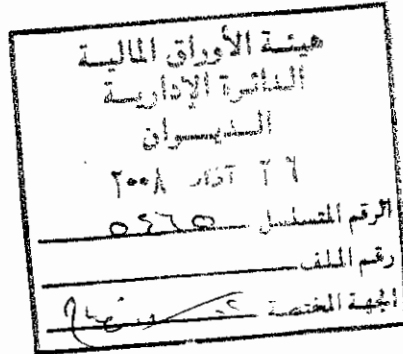 هيئة الأوراق المالية
الدائرة الإدارية
الديوان
٢٦ آذار ٢٠٠٨
الرقم المتسلسل
رقم الملف
الجهة المختصة